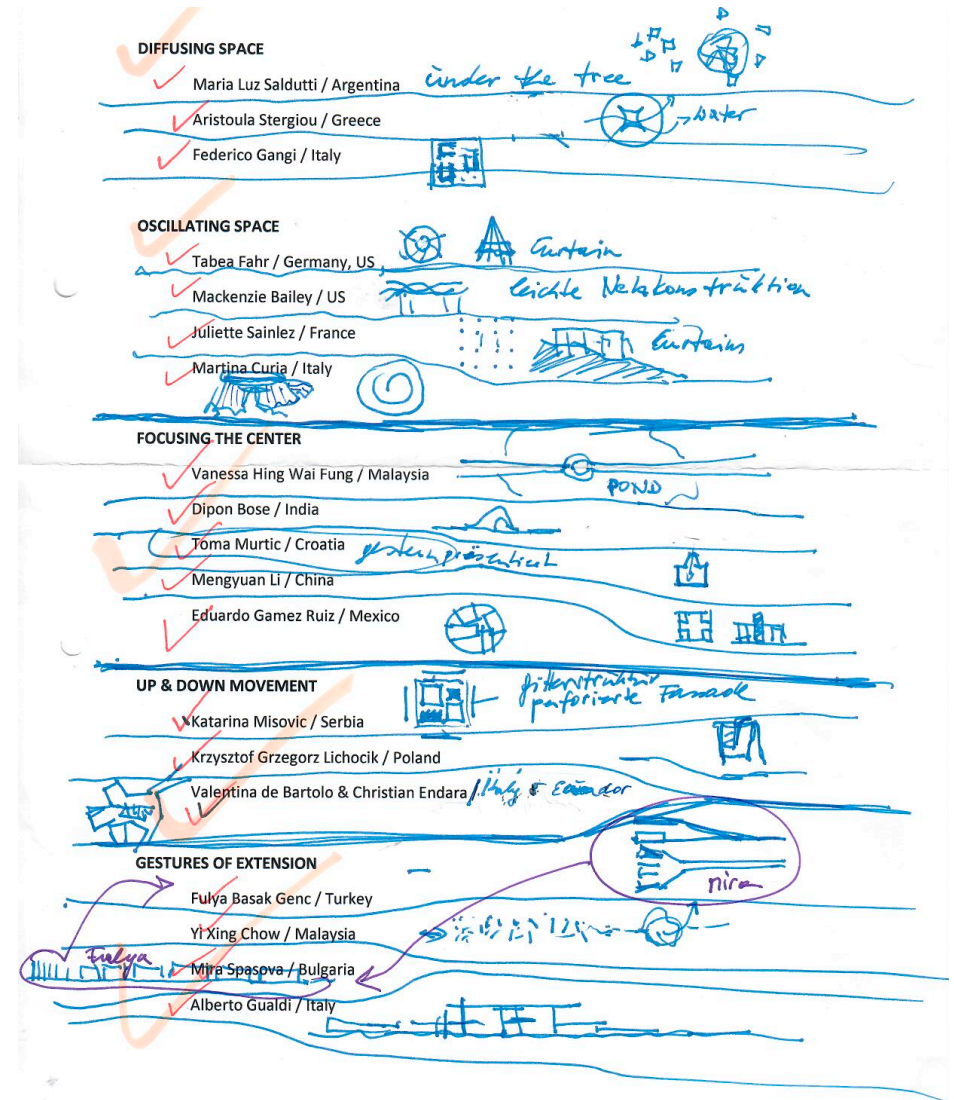 DIFFUSING SPACE
Maria Luz Saldutti / Argentina under the tree
Aristoula Stergiou / Greece water
Federico Gangi / Italy
OSCILLATING SPACE
Tabea Fahr / Germany, US Curtain
Mackenzie Bailey / US leichte
Juliette Sainlez / France Curtains
Martina Curia / Italy
FOCUSING THE CENTER
Vanessa Hing Wai Fung / Malaysia
POND
Dipon Bose / India
Toma Murtic / Croatia gestern präsentiert
Mengyuan Li / China
Eduardo Gamez Ruiz / Mexico
UP & DOWN MOVEMENT
Gitterstruktur
perforierte Fassade
Katarina Misovic / Serbia
Krzysztof Grzegorz Lichocik / Poland
Valentina de Bartolo & Christian Endara / Italy & Ecuador
GESTURES OF EXTENSION
mira
Fulya Basak Genc / Turkey
Yi Xing Chow / Malaysia
Fulya
Mira Spasova / Bulgaria
Alberto Gualdi / Italy